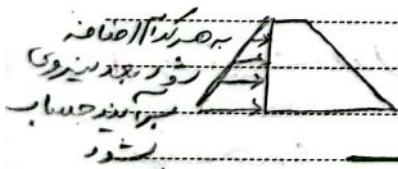 به هر کدام اضافه
شود بعد نیروی
برآیند حساب
شود